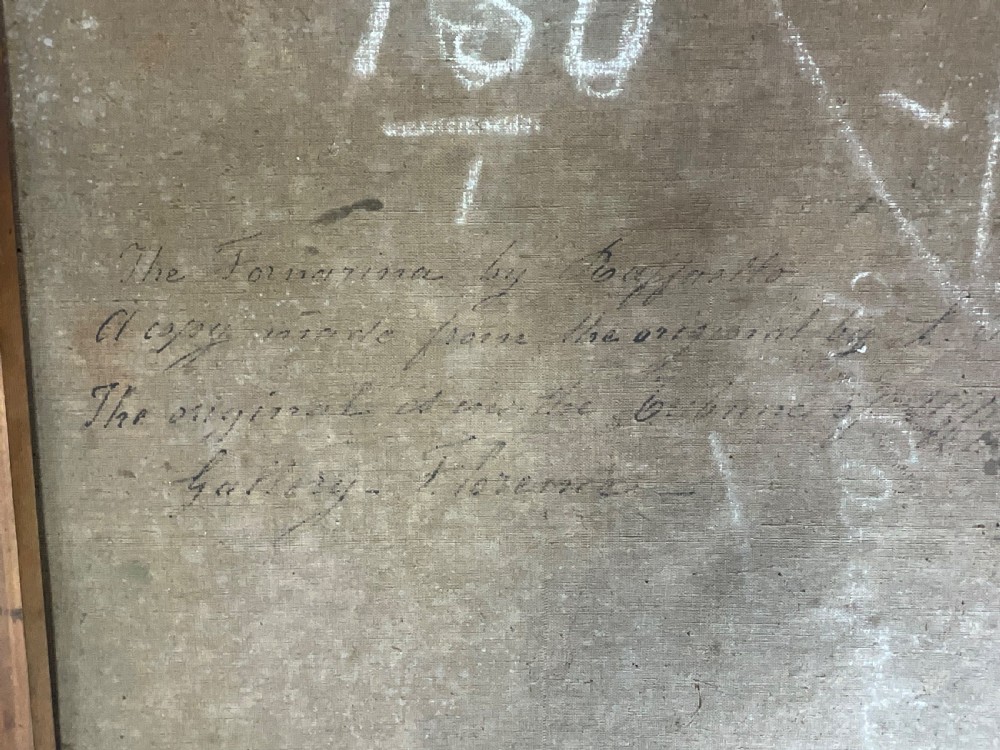 150
The Fornarina by Raffaello
A copy made from the original by
The original is in the Tribune of
Gallery - Florence -